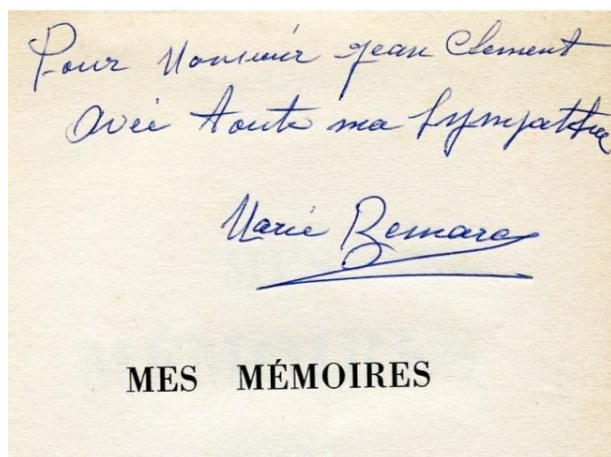 Pour Monsieur Jean Clement
avec toute ma sympathie
Marie Besnard
MES MÉMOIRES